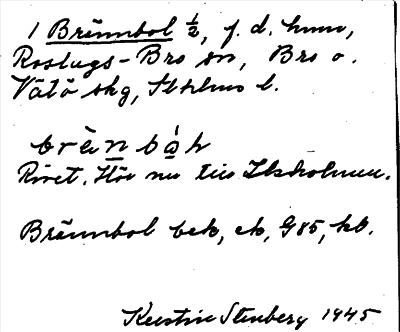 1 Brännbol ½, f. d. hmn,
Roslags-Bro sn, Bro o.
Vätö skg, Sthlms l.
brä̀nbòḷ
Rivet. Hör nu till Ilsholmen.
Brännbol bek, ek, G85, kb.
Kerstin Stenberg 1945